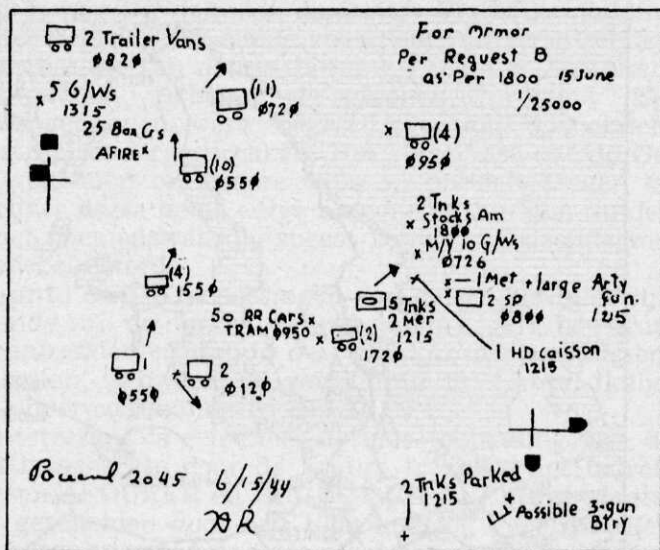 2 Trailer Vans
Ø82Ø
5 G/Ws
1315
(11)
Ø72Ø
25 Box Cs
AFIRE
(10)
Ø55Ø
For Armor
Per Request B
as Per 1800 15 June
1/25000
(4)
Ø95Ø
2 Tnks
Stocks Am
18ØØ
M/Y 10 G/Ws
Ø726
1 Met + large Arty
Gun.
125
2 SP
Ø8ØØ
5 Tnks
2 Mer
1215
1 HD Caisson
1215
(4)
155Ø
50 RR Cars
TRAM Ø950
(2)
172Ø
1
Ø55Ø
2
Ø12Ø
2045
6/15/44
2 Tnks Parked
1215
Possible 3-gun
Btry